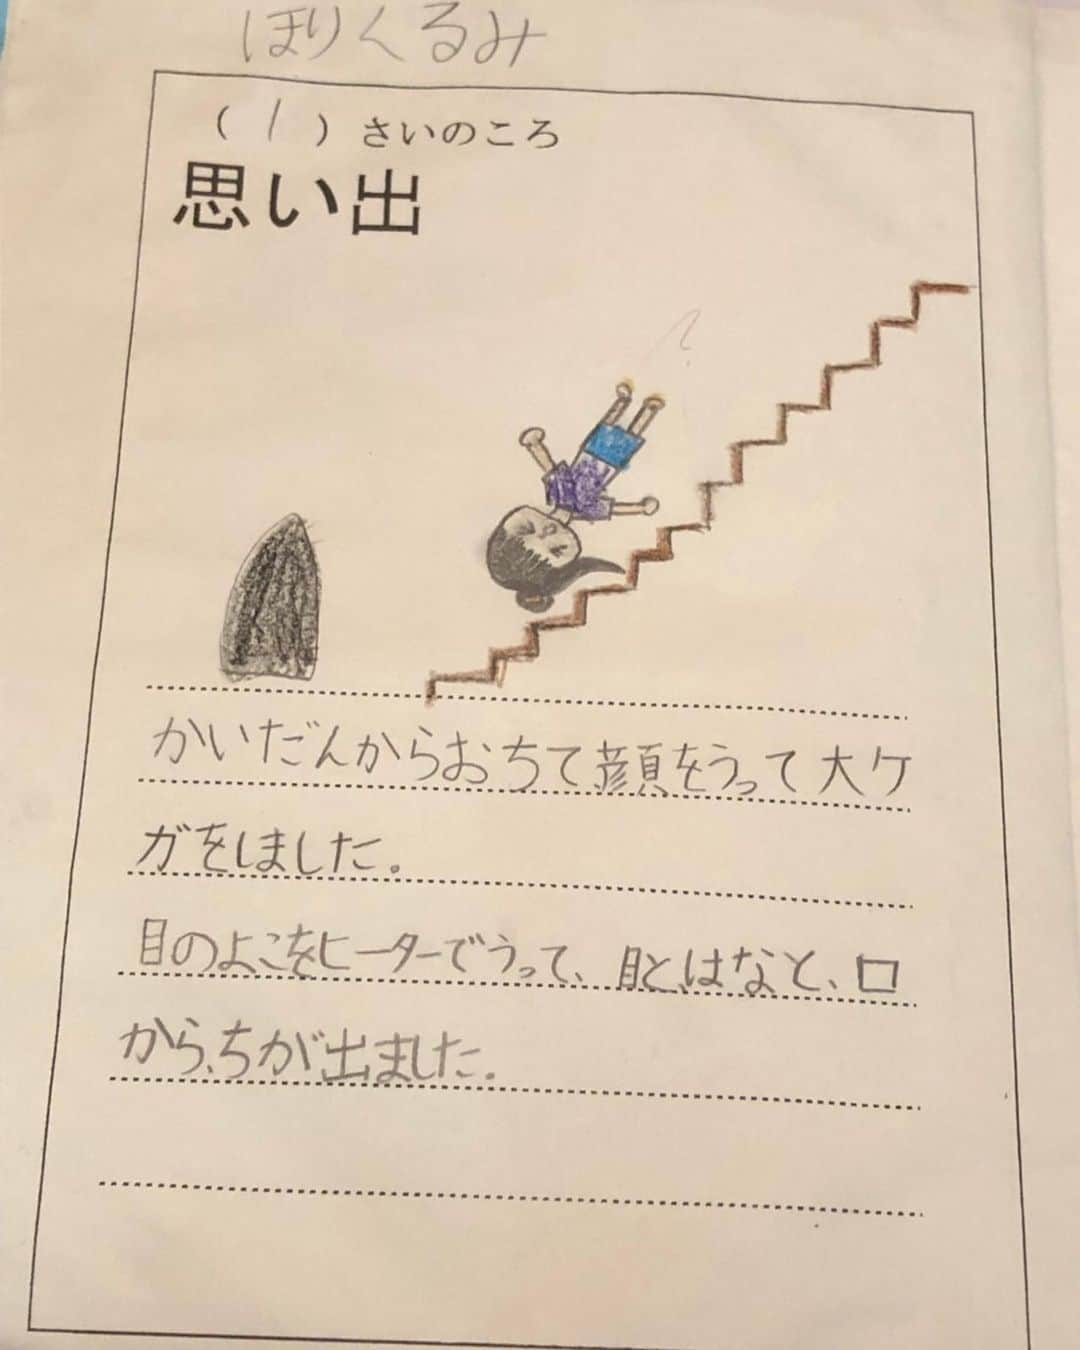 ほりくるみ
( 1 ) さいのころ
思い出
?
かいだんからおちて顔をうって大ケ
ガをしました。
目のよこをヒーターでうって、目と、はなと、口
から、ちが出ました。